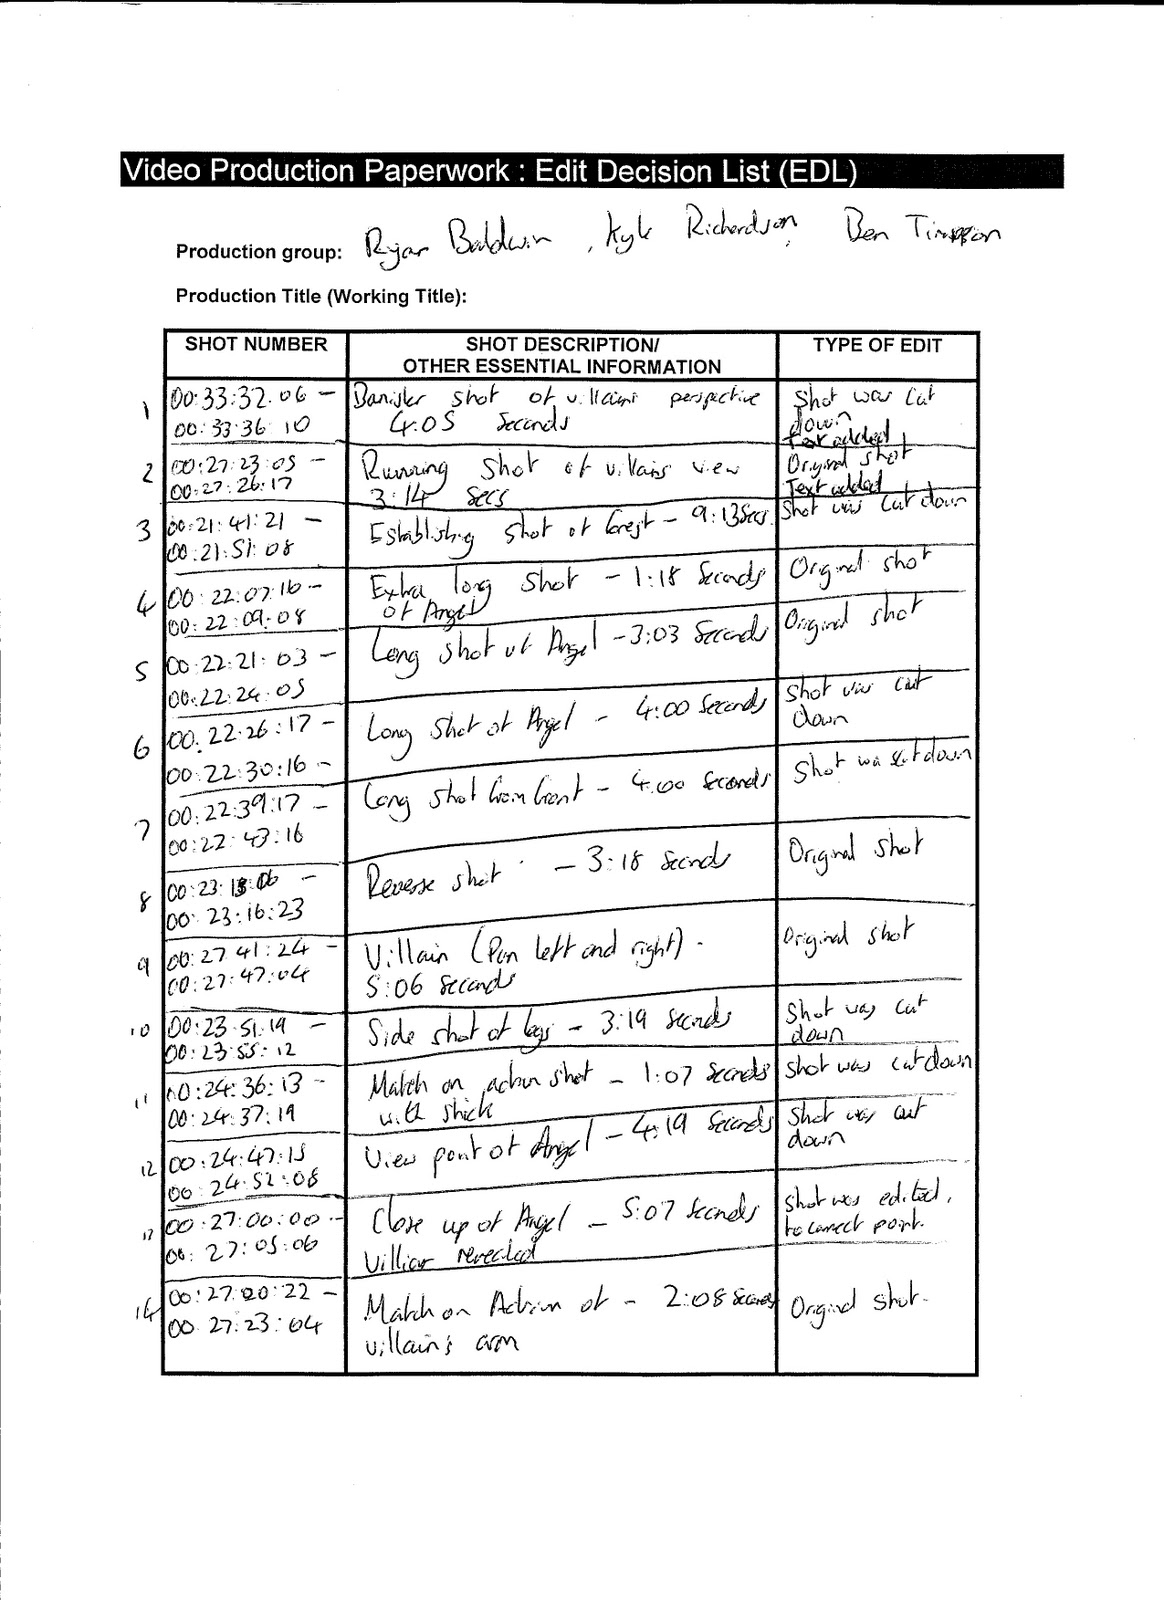 Video Production Paperwork : Edit Decision List (EDL)
Production group: Ryan Baldwin , Kyle Richardson, Ben Timpson
Production Title (Working Title):
SHOT NUMBER
SHOT DESCRIPTION/
OTHER ESSENTIAL INFORMATION
TYPE OF EDIT
1
00:33:32.06 -
00:33:36 10
Banister shot of villains perspective
4:05 Seconds
Shot was cut
down
Text added
2
00:27:23:05 -
00:27:26:17
Running shot of villains view
3:14 secs
Original shot
Text added
3
00:21:41:21 -
00:21:51:08
Establishing shot of forest - 9:13 Secs
Shot was cut down
4
00:22:07:16 -
00:22:09:08
Extra long shot - 1:18 Seconds
of Angel
Original shot
5
00:22:21:03 -
00:22:24:05
Long shot of Angel - 3:03 Seconds
Original shot
6
00:22:26:17 -
00:22:30:16 -
Long shot of Angel - 4:00 Seconds
Shot was cut
down
7
00:22:39:17 -
00:22:43:16
Long shot from front - 4:00 seconds
Shot was cut down
8
00:23:13:06 -
00:23:16:23
Reverse shot - 3:18 seconds
Original shot
9
00:27 41:24 -
00:27:47:04
Villain (Pan left and right) -
5:06 seconds
Original shot
10
00:23:51:19 -
00:23:55:12
Side shot of legs - 3:19 seconds
Shot was cut
down
11
00:24:36:13 -
00:24:37:19
Match on action shot - 1:07 Seconds
with stick
Shot was cut down
12
00:24:47:15
00:24:52:08
View point of Angel - 4:19 Seconds
Shot was cut
down
13
00:27:00:00 -
00:27:05:06
Close up of Angel - 5:07 Seconds
revealed
Shot was edited,
to correct point.
14
00:27:20:22 -
00 27:23:04
Match on Action of - 2:08 seconds
villain's arm
Original shot.